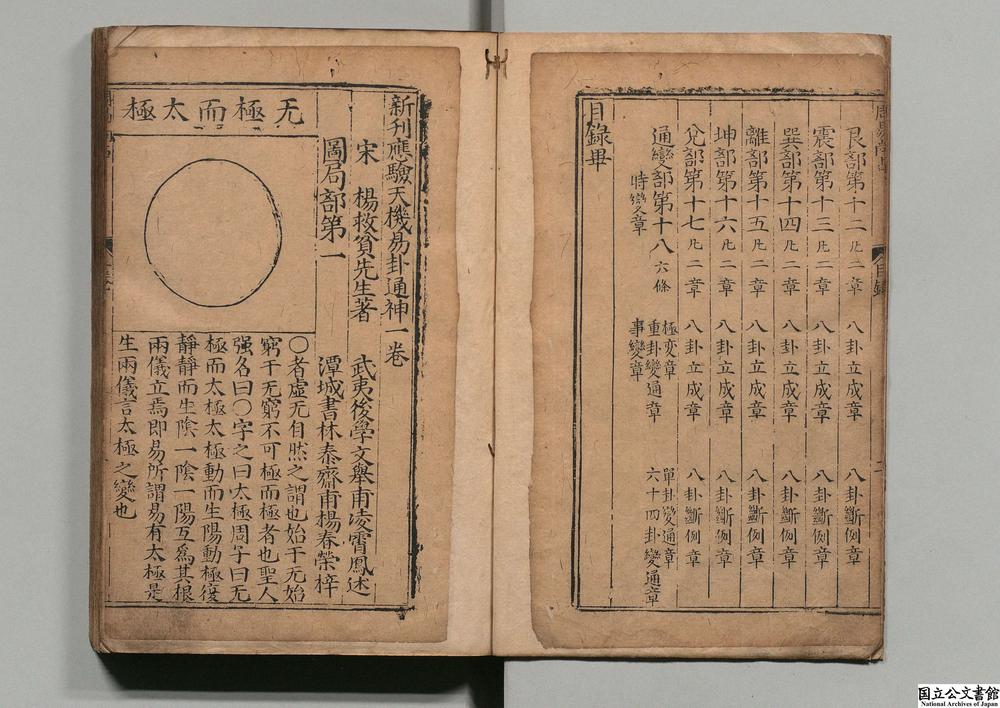 艮部第十二 凡二章 八卦立成章 八卦斷例章
震部第十三 凡二章 八卦立成章 八卦斷例章
巽部第十四 凡二章 八卦立成章 八卦斷例章
離部第十五 凡二章 八卦立成章 八卦斷例章
坤部第十六 凡二章 八卦立成章 八卦斷例章
兌部第十七 凡二章 八卦立成章 八卦斷例章
通變部第十八 六條 極変章 單卦變通章
重卦變通章 六十四卦變通章
時變章 事變章
目錄畢
目錄
新刊應驗天機易卦通神一卷
宋 楊救貧先生著 武夷後學文舉甫凌霄鳳述
潭城書林泰齋甫揚春榮梓
圖局部第一
无極而太極
〇者虛无自然之謂也始于无始
窮于无窮不可極而極者也聖人
强名曰〇字之曰太極周子曰无
極而太極太極動而生陽動極復
靜靜而生陰一陰一陽互爲其根
兩儀立焉即易所謂易有太極是
生兩儀言太極之變也
国立公文書館
National Archives of Japan